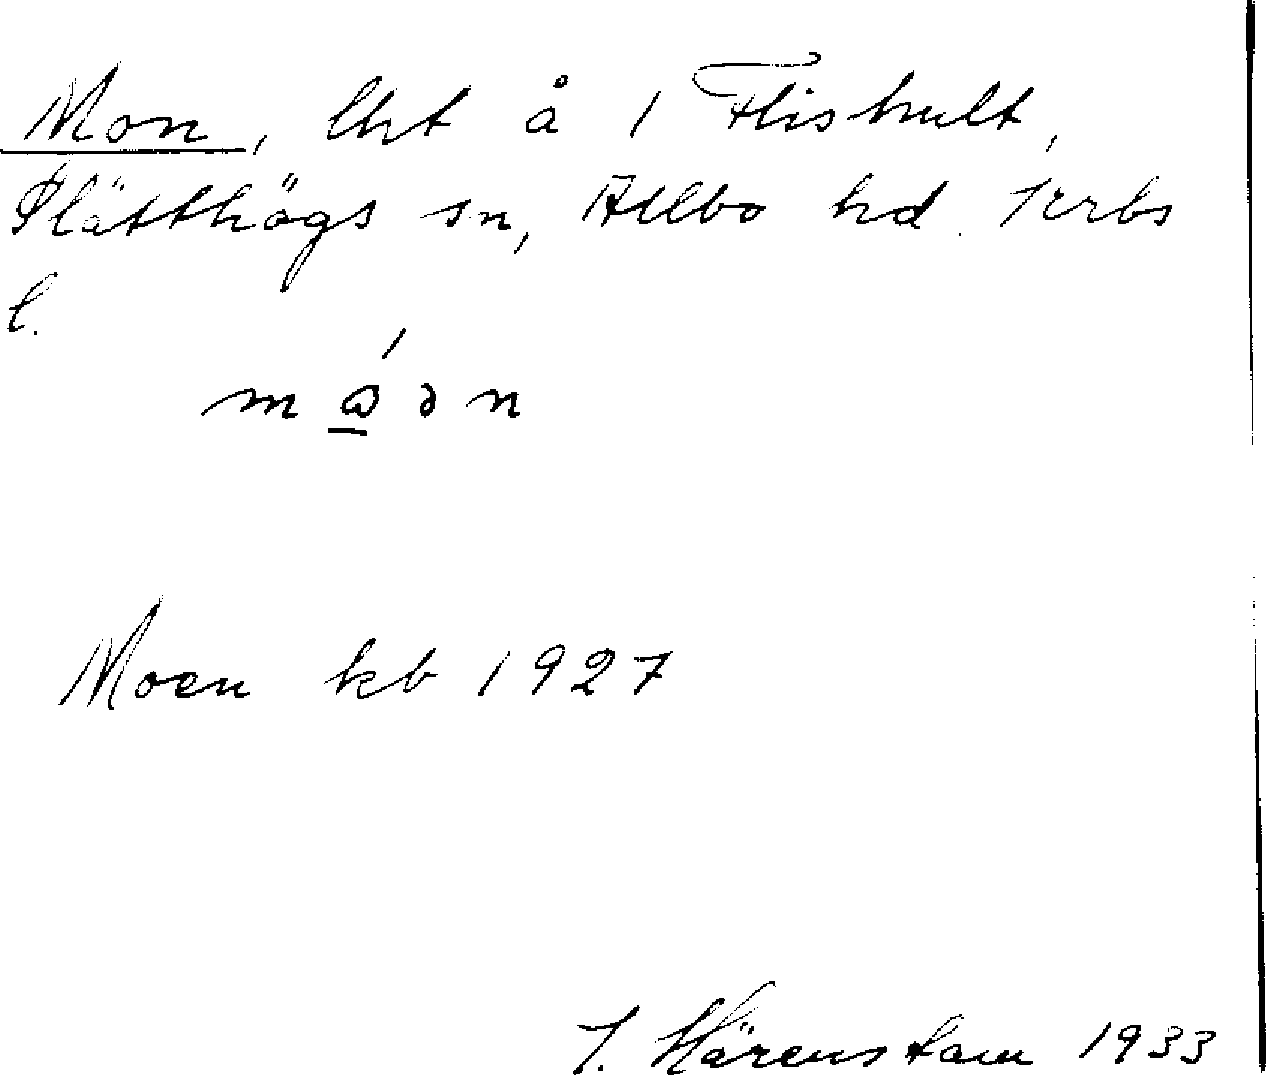 Mon, lht å 1 Flishult,
Slätthögs sn, Allbo hd. Krbs
l.
m å ə n
Moen kb 1927
J. Härenstam 1933